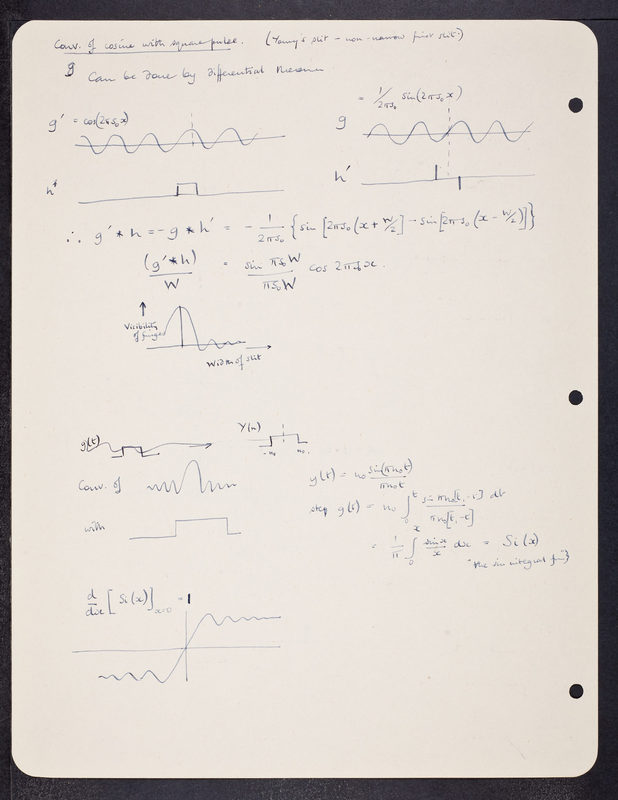 Conv. of cosine with square pulse. (Young's slit - non-narrow first slit.)
g Can be done by differential theorem
g' = cos(2πs₀x)
g = 1/2πs₀ sin(2πs₀x)
h
h'
∴ g' * h = - g * h' = - 1/2πs₀ { sin [2πs₀(x + W/2] - sin[2πs₀(x - W/2)]}
(g' * h)/W = sin πs₀W / πs₀W cos 2πs₀x.
Visibility
of fringes
Width of slit
g(t)
Y(n)
-n₀ n₀
Conv. of
with
y(t) = n₀ sin(πn₀t)/πn₀t
step g(t) = n₀ ∫₀ᵗ sin πn₀[t₁-t]/πn₀[t₁-t] dt
= 1/π ∫₀ˣ sin x/x dx = Si(x)
"the sin integral fn"}
d/dx [Si(x)]ₓ₌₀ = 1